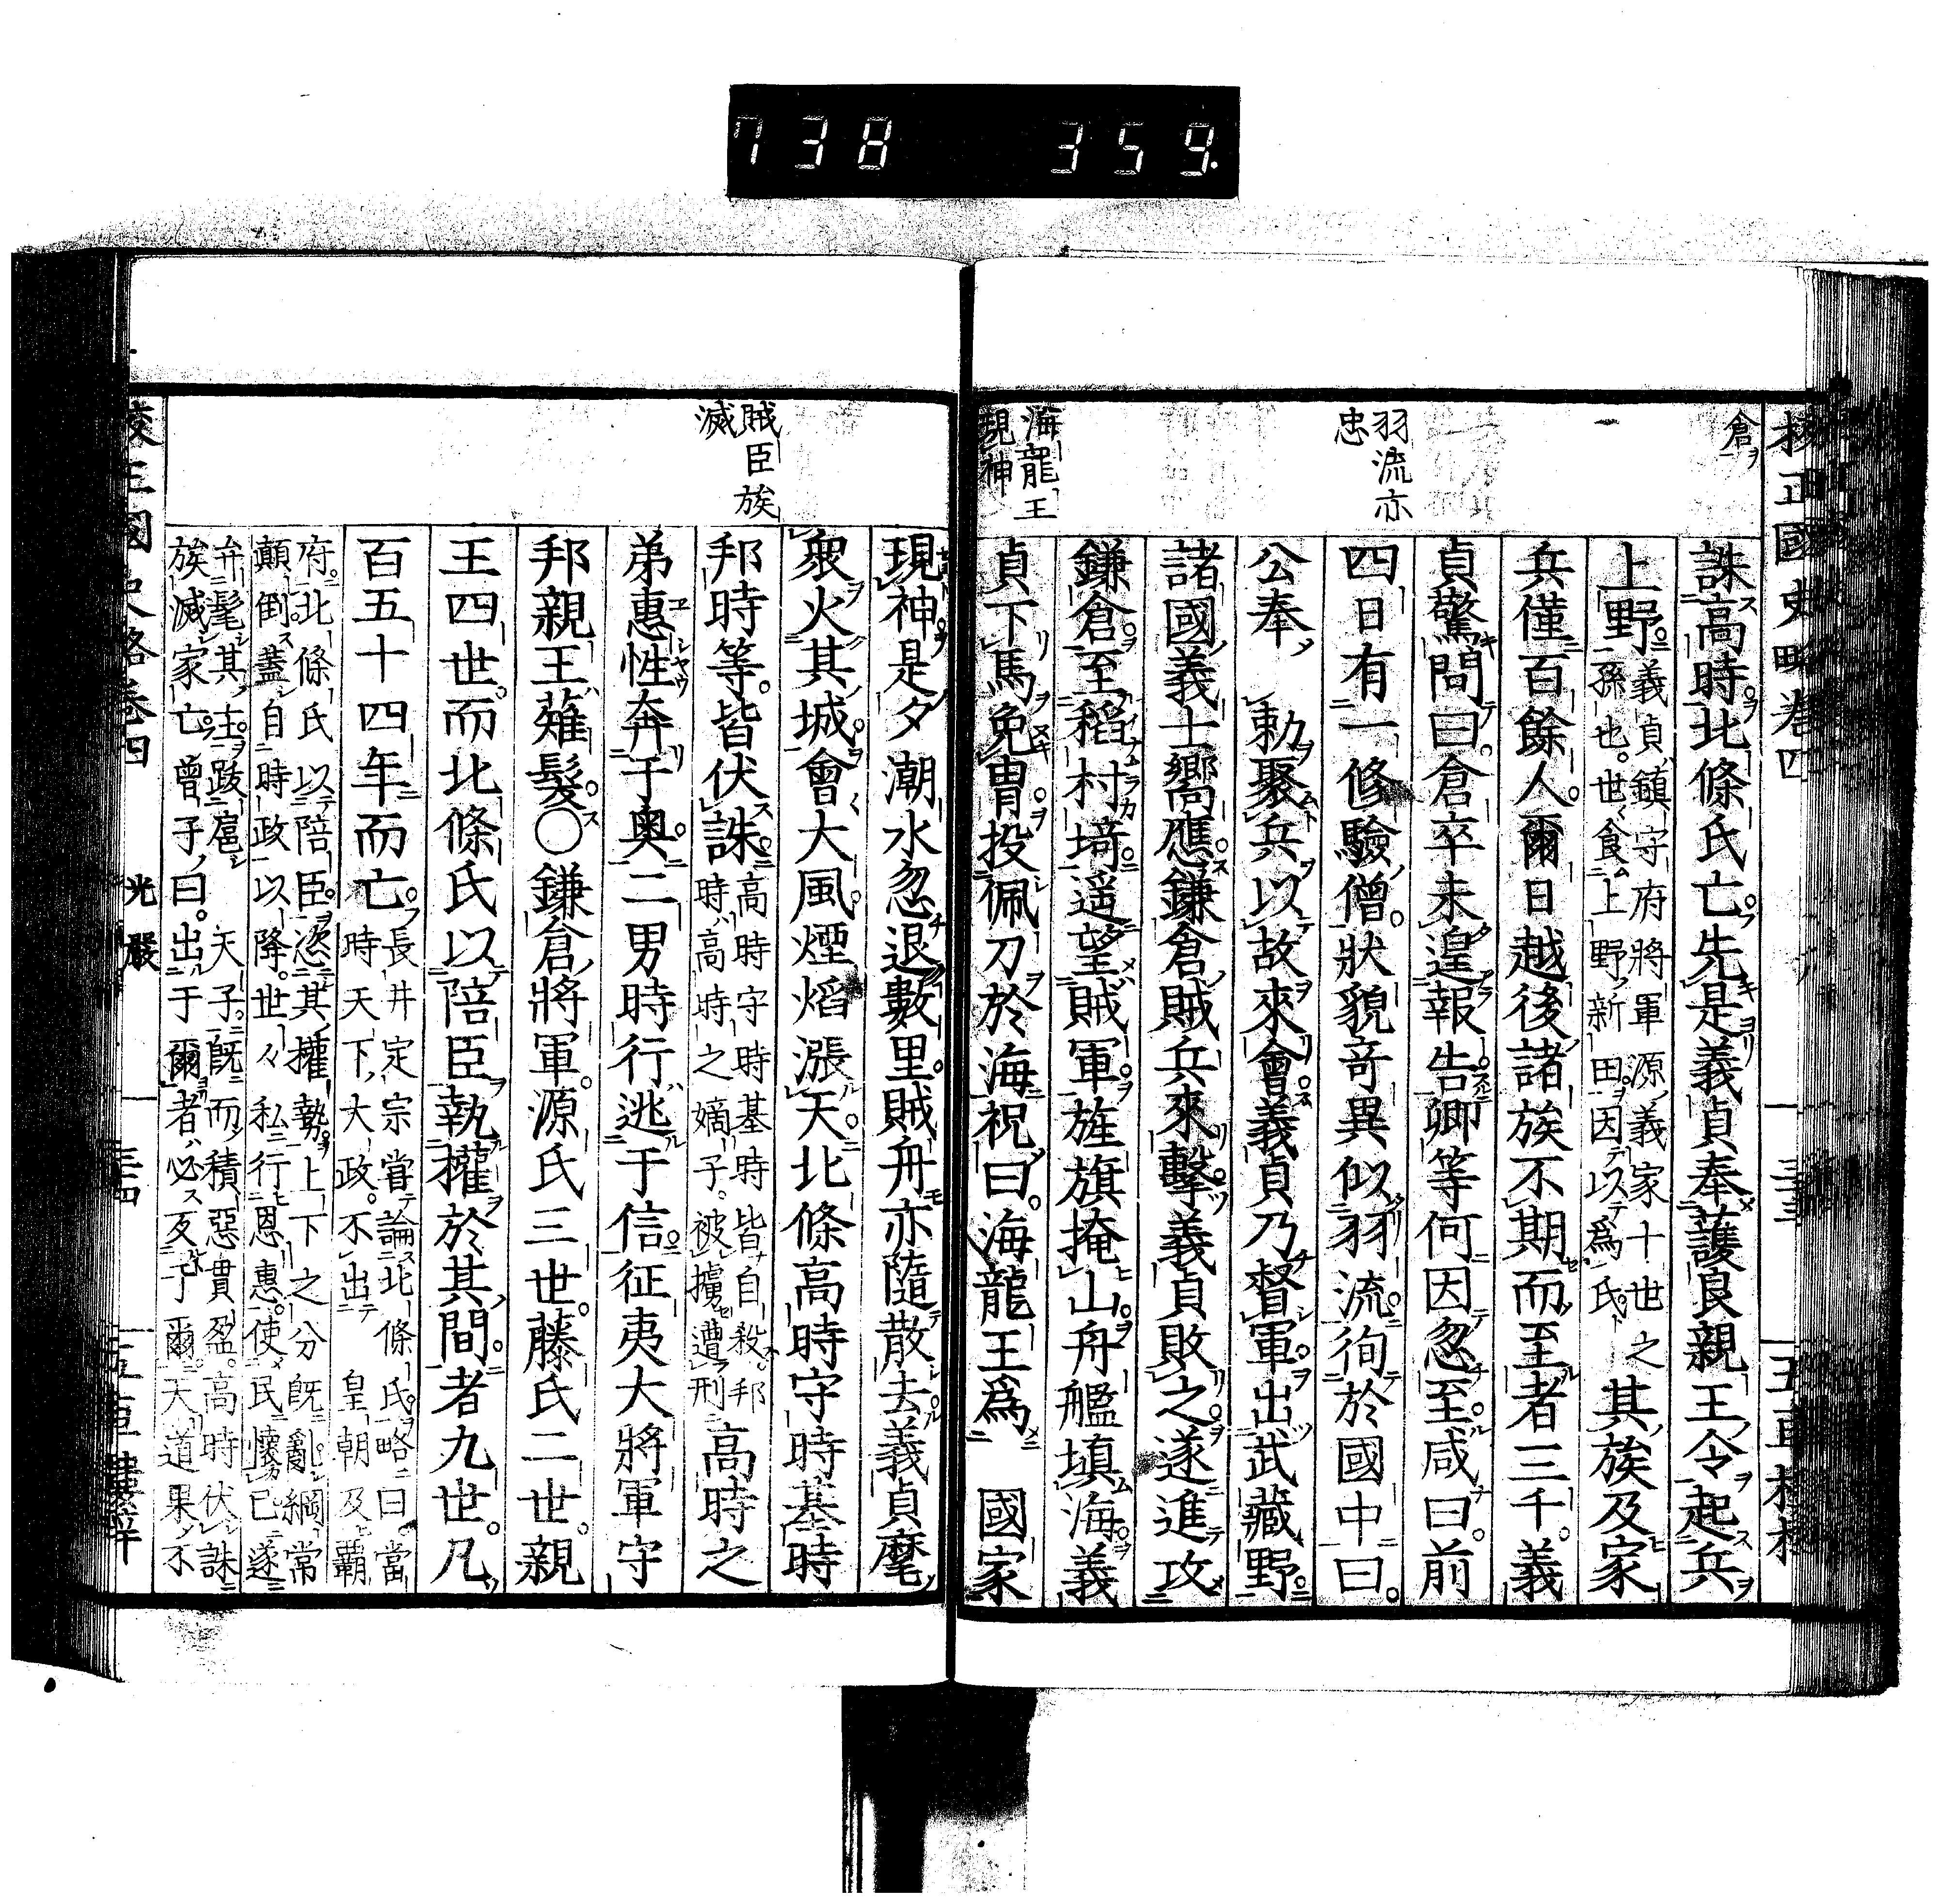 738 359.
校正國史略卷四
三十三
倉ヲ
羽流亦
忠
海龍王
現神
誅高時北條氏亡。先是義貞奉護良親王令起兵
上野。義貞鎮守府將軍源義家十世之
孫也。世食上野新田因以爲氏
其族及家
兵僅百餘人。爾日越後諸族不期而至者三千。義
貞驚問曰。倉卒未遑報告卿等何因忽至。咸曰。前
四日有一修驗僧。狀貌奇異似羽流。徇於國中曰。
公奉 勅聚兵以故來會義貞乃督軍出武藏野。
諸國義士嚮應。鎌倉賊兵來擊。義貞敗之。遂進攻
鎌倉。至稻村埼。遥望賊軍。旌旗掩山。舟艦塡海。義
貞下馬免胄投佩刀於海祝曰。海龍王爲 國家
賊臣族
滅
現神是夕潮水忽退數里。賊舟亦隨散去義貞麾
衆火其城。會大風。煙熖漲天北條高時守時基時
邦時等。皆伏誅。
高時守時基時皆自殺。邦
時高時之嫡子。被擄遭刑
高時之
弟惠性奔于奥。二男時行逃于信。征夷大將軍守
邦親王薙髮。〇鎌倉將軍。源氏三世。藤氏二世。親
王四世。而北條氏以陪臣執權於其間者九世。凡
百五十四年而亡。
長井定宗嘗論北條氏略曰。當
時天下大政。不出 皇朝及覇
府。北條氏以陪臣。恣其權勢。上下之分旣亂。綱常
顛倒。蓋自時政以降。世々私行恩惠。使民懷己。遂
弁髦其主。跋扈 天子。旣而積惡貫盈。高時伏誅
族滅家亡。曾子曰。出于爾者必反于爾。天道果不
光嚴
三十四